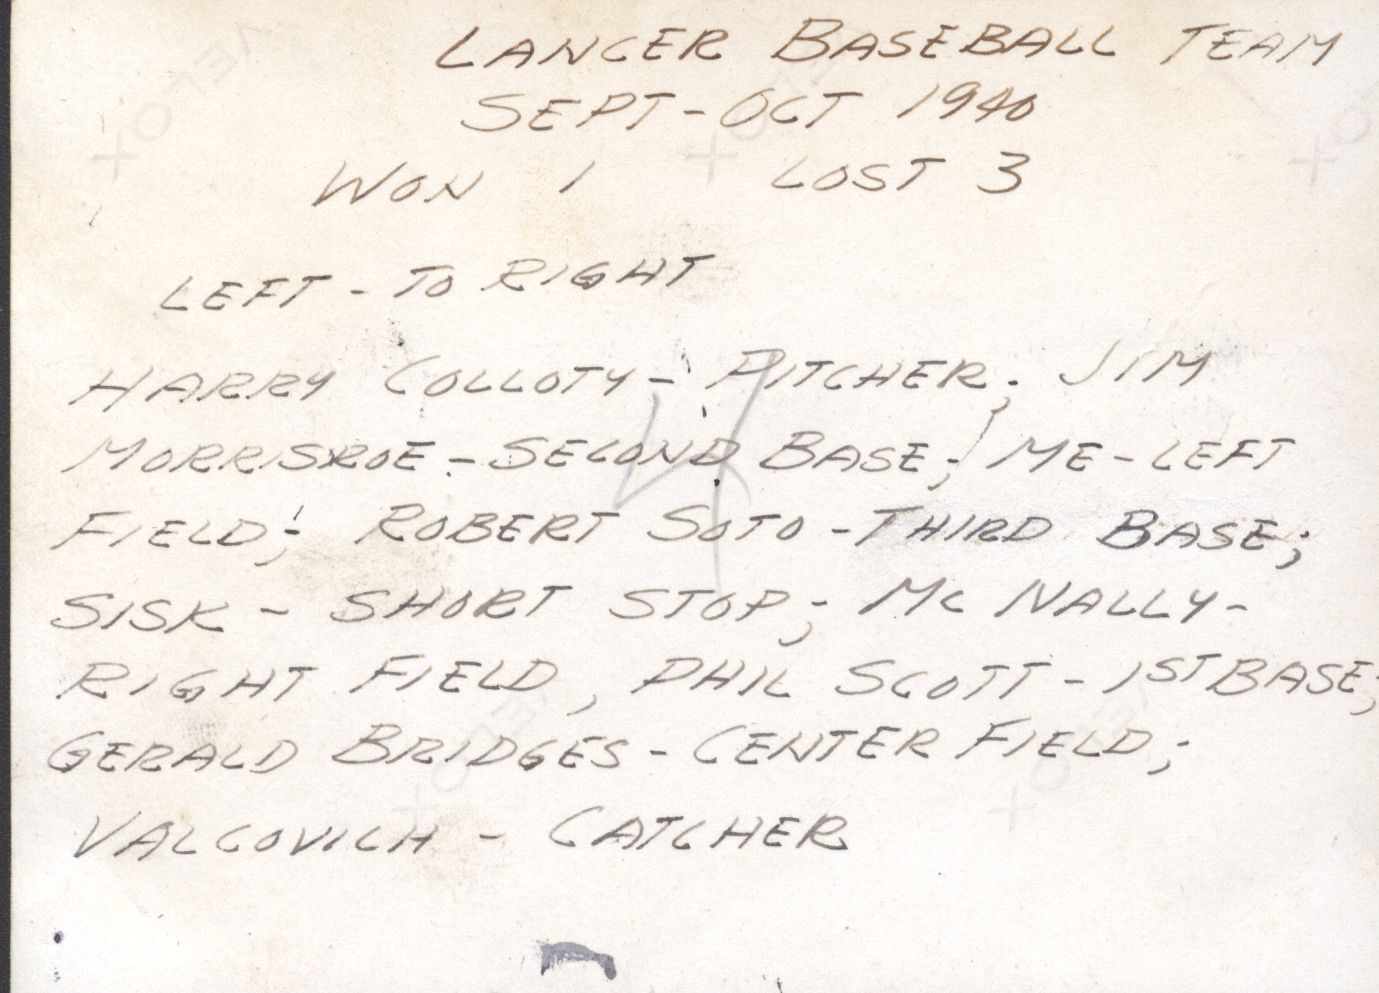 LANCER BASEBALL TEAM
SEPT-OCT 1940
WON 1 LOST 3
LEFT-TO RIGHT
HARRY COLLOTY- PITCHER; JIM
MORRISROE-SECOND BASE; ME-LEFT
FIELD; ROBERT SOTO-THIRD BASE;
SISK- SHORT STOP; MC NALLY-
RIGHT FIELD, PHIL SCOTT-1ST BASE;
GERALD BRIDGES-CENTER FIELD;
VALCOVICH- CATCHER